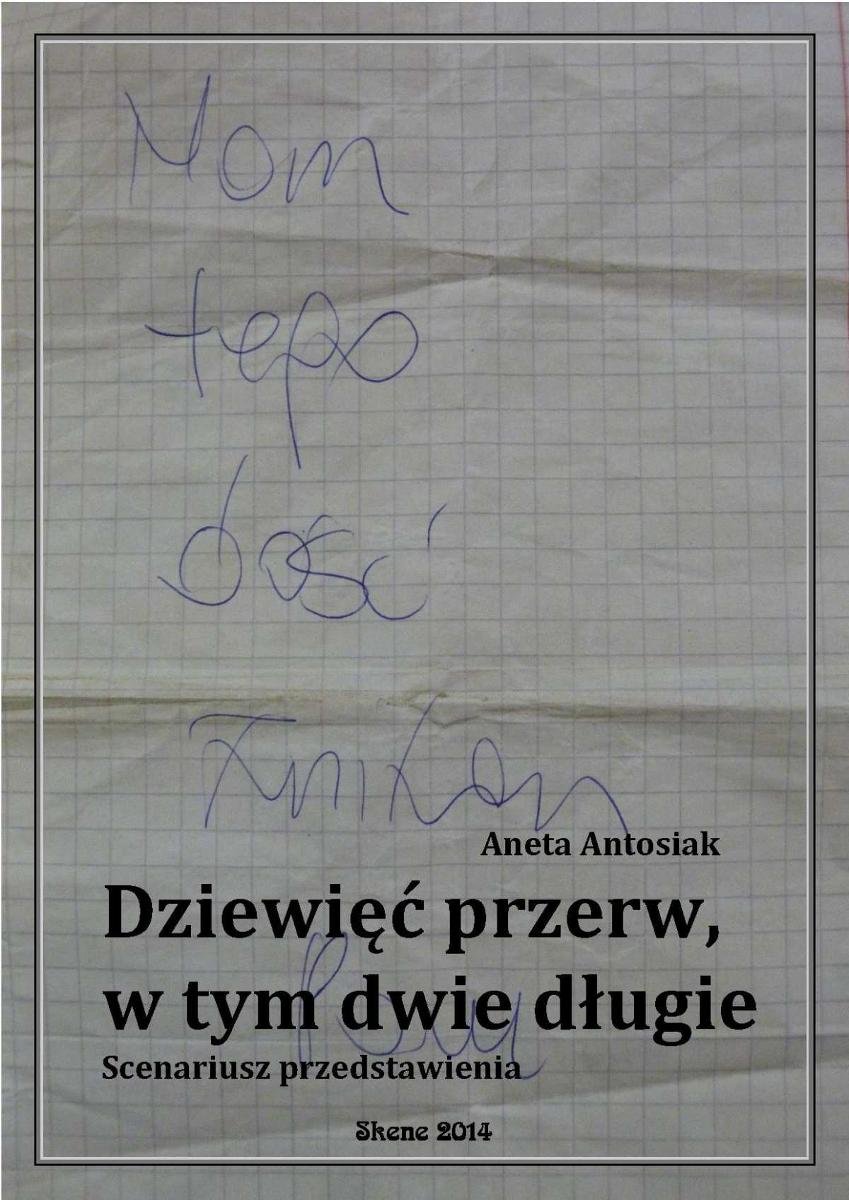 Mam
tego
dość
Znikam
Aneta Antosiak
Dziewięć przerw,
w tym dwie długie
Scenariusz przedstawienia
Skene 2014